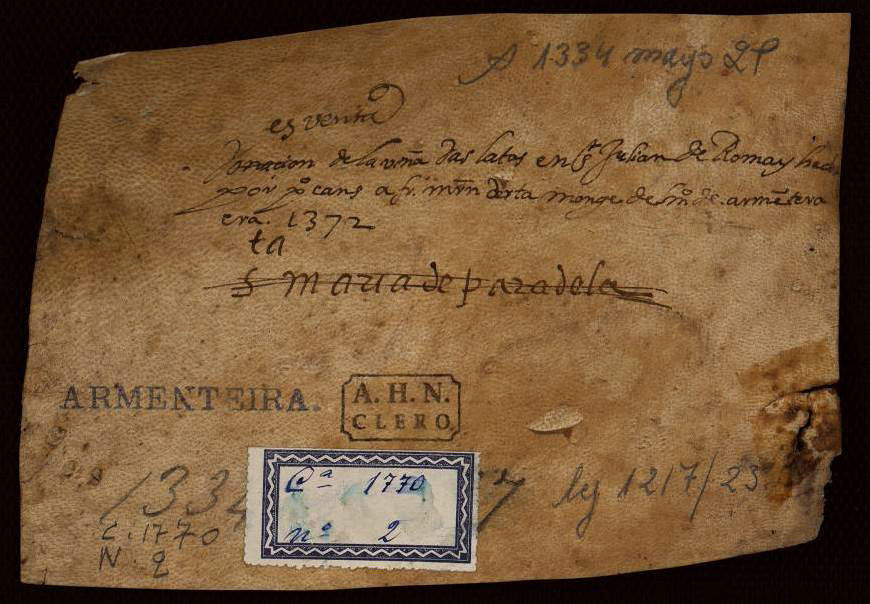 A 1334 mayo 21
es venta
Donacion de la viña das latas en S. Julian de Romay hecha
por po cans a fr. mrn dorta monge de sta. de armētera
era. 1372
ta
S maria de paradela
ARMENTEIRA.
A. H. N.
CLERO
133
leg 1217/23
Ca 1770
no 2
C. 1770
N. 2